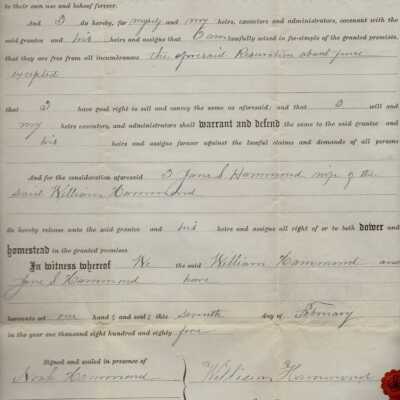 to their own use and behoof forever.
And I do hereby, for myself and my heirs, executors and administrators, covenant with the
said grantee and his heirs and assigns that I am lawfully seized in fee-simple of the granted premises,
that they are free from all incumbrances the aforesaid Reservation about fence
excepted
that I have good right to sell and convey the same as aforesaid; and that I will and
my heirs executors, and administrators shall warrant and defend the same to the said grantee and
his heirs and assigns forever against the lawful claims and demands of all persons
And for the consideration aforesaid I Jane S Hammond wife of the
said William Hammond
do hereby release unto the said grantee and his heirs and assigns all right of or to both dower and
homestead in the granted premises.
In witness whereof We the said William Hammond and
Jane S Hammond have
hereunto set our hand s and seal s this seventh day of February
in the year one thousand eight hundred and eighty five
Signed and sealed in presence of
Noah Hammond William Hammond